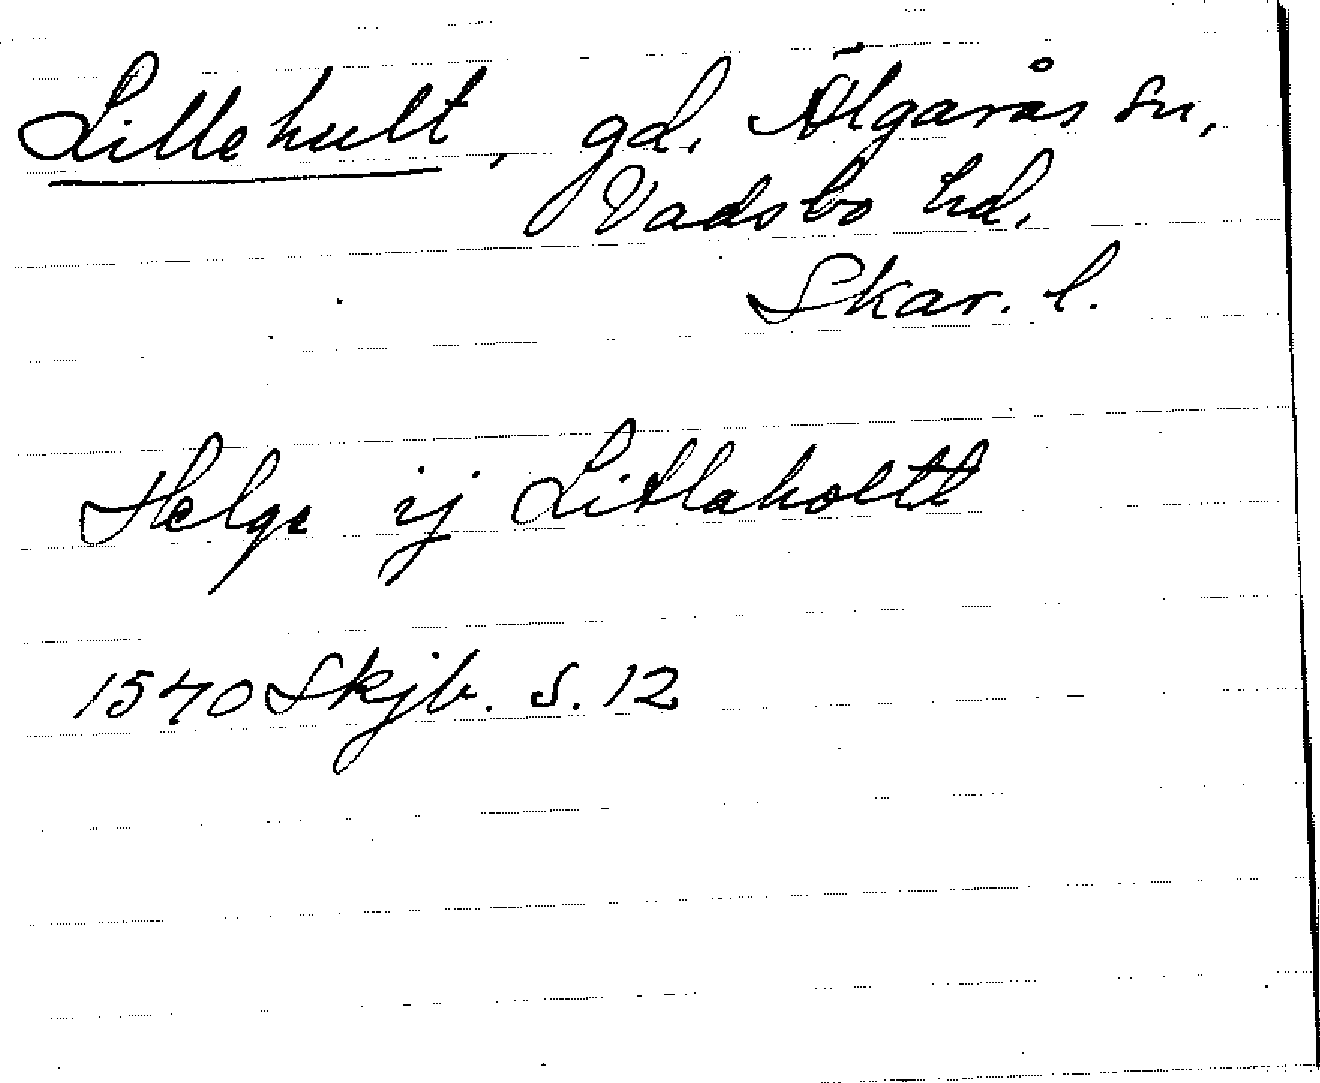 Lillehult, gd. Älgarås sn,
Vadsbo hd.
Skar. l.
Helge ij Litlaholtt
1540 Skjb. s. 12